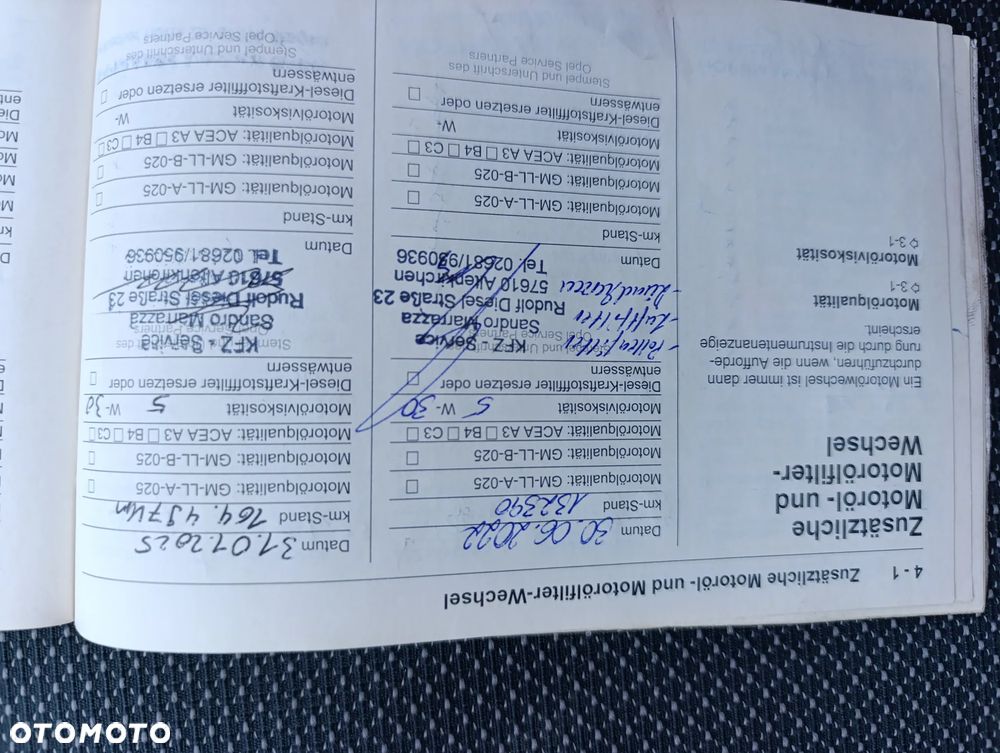 4 - 1 Zusätzliche Motoröl- und Motorölfilter-Wechsel
Zusätzliche
Motoröl- und
Motorölfilter-
Wechsel
Ein Motorölwechsel ist immer dann
durchzuführen, wenn die Aufforde-
rung durch die Instrumentenanzeige
erscheint.
Motorölqualität
⇨ 3-1
Motorölviskosität
⇨ 3-1
Datum 30.06.2022
km-Stand 132390
Motorölqualität: GM-LL-A-025 ☐
Motorölqualität: GM-LL-B-025 ☐
Motorölqualität: ACEA A3 ☐ B4 ☐ C3 ☐
Motorölviskosität 5 W- 30
Diesel-Kraftstofffilter ersetzen oder
entwässern ☐
- Pollenfilter
- Luftfilter
KFZ - Service
Sandro Marrazza
Rudolf Diesel Straße 23
57610 Altenkirchen
Tel. 02681/950936
Opel Service Partners
Datum
km-Stand
Motorölqualität: GM-LL-A-025 ☐
Motorölqualität: GM-LL-B-025 ☐
Motorölqualität: ACEA A3 ☐ B4 ☐ C3 ☐
Motorölviskosität W-
Diesel-Kraftstofffilter ersetzen oder
entwässern ☐
Stempel und Unterschrift des
Opel Service Partners
Datum 31.01.2025
km-Stand 164.497 km
Motorölqualität: GM-LL-A-025 ☐
Motorölqualität: GM-LL-B-025 ☐
Motorölqualität: ACEA A3 ☐ B4 ☐ C3 ☐
Motorölviskosität 5 W- 30
Diesel-Kraftstofffilter ersetzen oder
entwässern ☐
KFZ - Service
Sandro Marrazza
Rudolf Diesel Straße 23
57610 Altenkirchen
Tel. 02681/950936
Datum
km-Stand
Motorölqualität: GM-LL-A-025 ☐
Motorölqualität: GM-LL-B-025 ☐
Motorölqualität: ACEA A3 ☐ B4 ☐ C3 ☐
Motorölviskosität W-
Diesel-Kraftstofffilter ersetzen oder
entwässern ☐
Stempel und Unterschrift des
Opel Service Partners
OTOMOTO